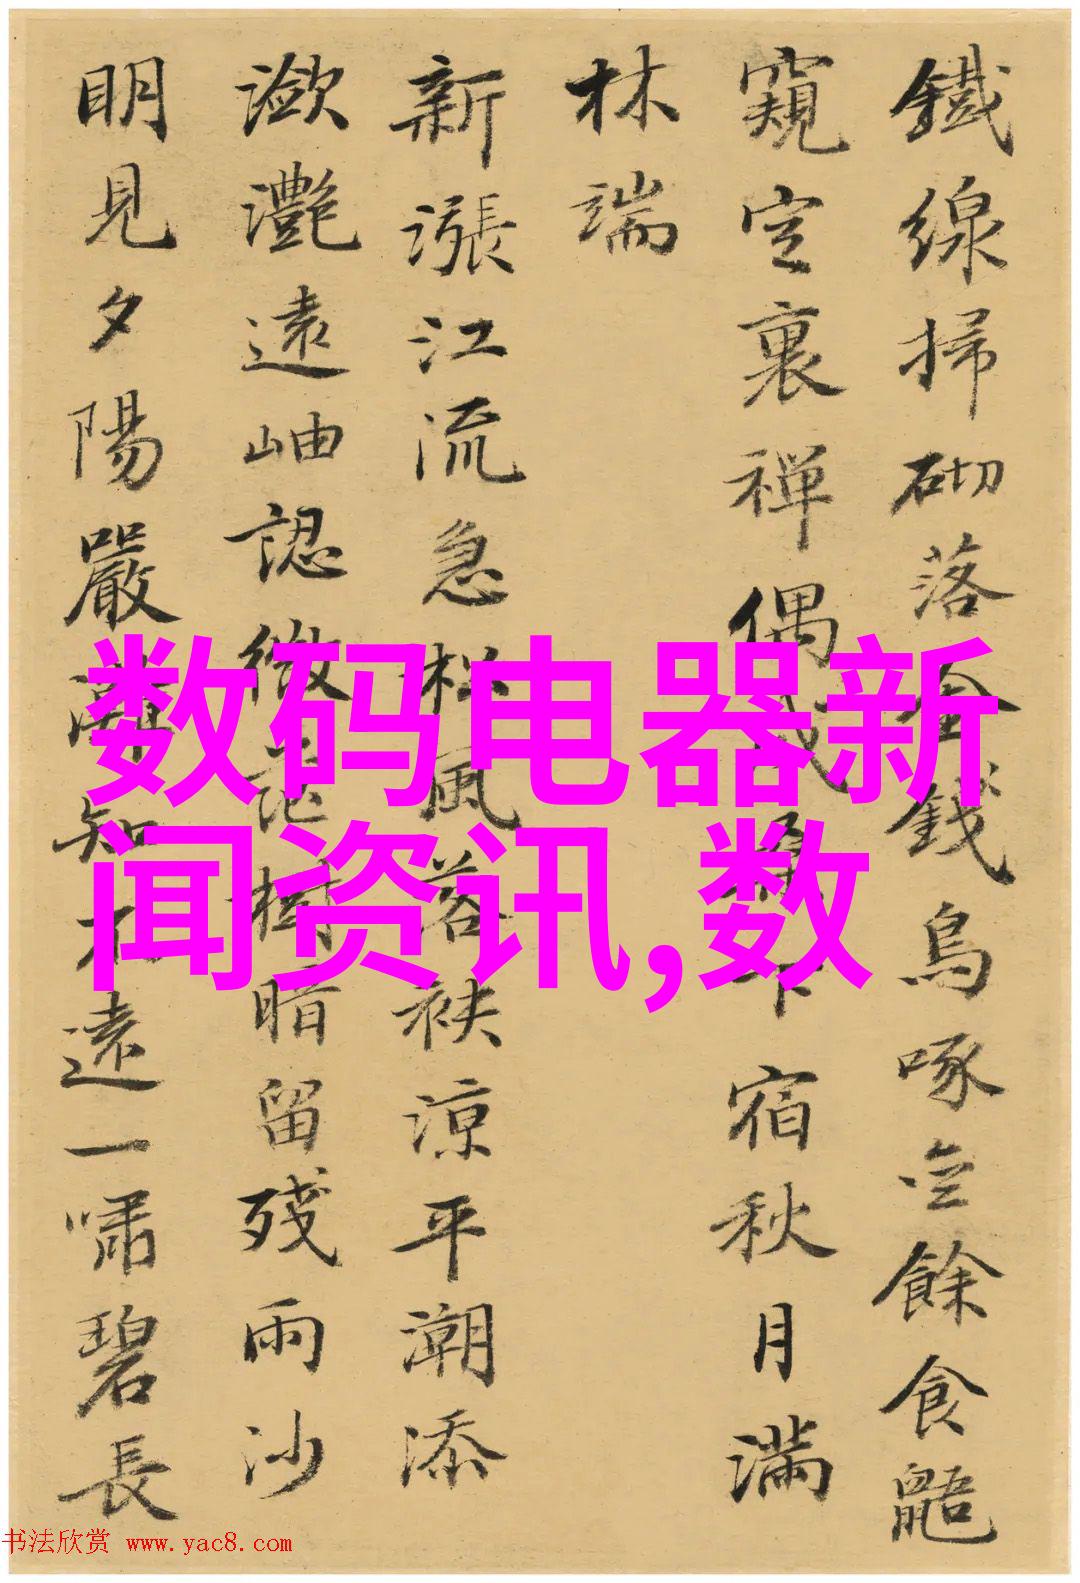 鐵線掃砌落金錢烏啄空餘食鼯
窺定裏禪偶成宿秋月滿
林端
新漲江流急松風落袂涼平潮添
瀲灩遠岫認微茫樹暗留殘雨沙
明見夕陽嚴灘知不遠一嘯碧長
数码电器新
闻资讯,数
书法欣赏 www.yac8.com